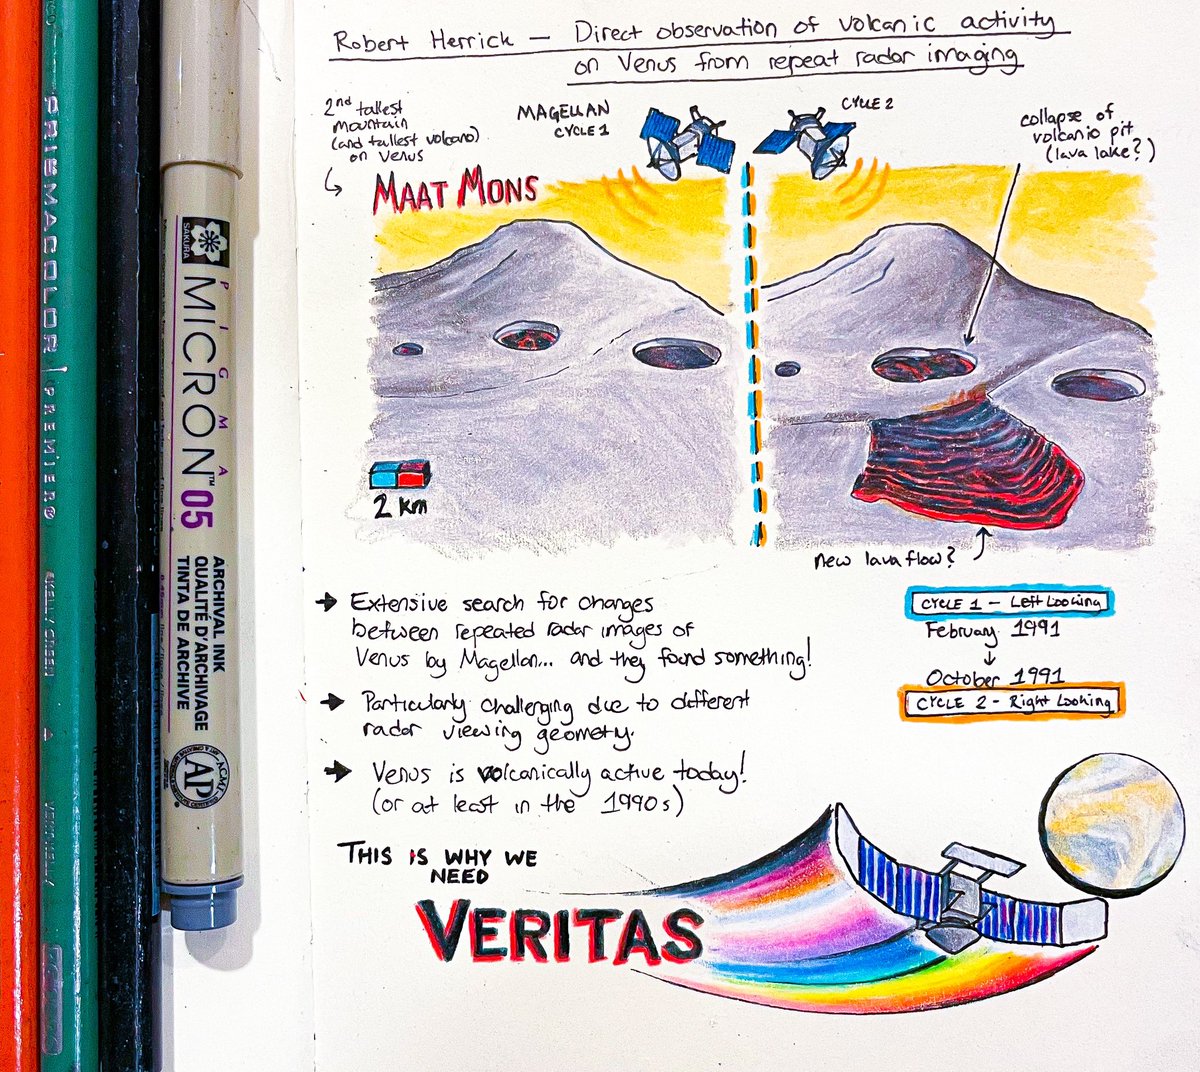 Robert Herrick — Direct observation of volcanic activity
on Venus from repeat radar imaging
2nd tallest
mountain
(and tallest volcano)
on Venus
MAGELLAN
CYCLE 1
CYCLE 2
collapse of
volcanic pit
(lava lake?)
MAAT MONS
2 km
new lava flow?
→ Extensive search for changes
between repeated radar images of
Venus by Magellan... and they found something!
→ Particularly challenging due to different
radar viewing geometry.
→ Venus is volcanically active today!
(or at least in the 1990s)
CYCLE 1 - Left Looking
February 1991
↓
October 1991
CYCLE 2 - Right Looking
THIS IS WHY WE
NEED
VERITAS
PRISMACOLOR | PREMIER®
SAKURA
PIGMA
MICRON™ 05
ARCHIVAL INK
QUALITÉ D'ARCHIVAGE
TINTA DE ARCHIVE
AP